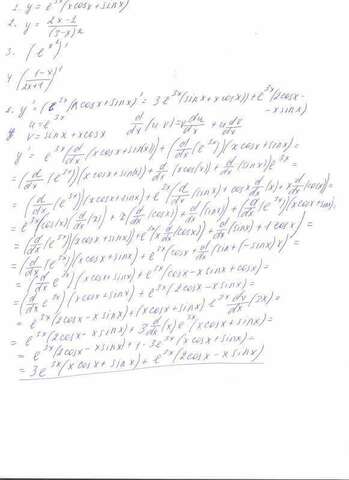 1. y = e^3x (x cos x + sin x)
2. y = (2x-1)/(3-x)^2
3. (e^x²)'
4 ((1-x)/(2x+1))'
y' = (e^3x (x cos x + sin x))' = 3e^3x (sin x + x cos x) + e^3x (2cos x - x sin x)
u = e^3x d/dx (u v) = v du/dx + u dv/dx
v = sin x + x cos x
y' = e^3x (d/dx (x cos x + sin x)) + (d/dx (e^3x)) (x cos x + sin x) =
= (d/dx (e^3x)) (x cos x + sin x) + d/dx (x cos x) + d/dx (sin x) e^3x =
= (d/dx (e^3x)) (x cos x + sin x) + e^3x (d/dx (sin x) + cos x d/dx (x) + x d/dx (cos x)) =
= e^3x (cos x) (d/dx (x)) + x (d/dx (cos x)) + d/dx (sin x)) + (d/dx (e^3x)) (x cos x + sin x) =
= (d/dx (e^3x)) (x cos x + sin x) + e^3x (x d/dx (cos x)) + d/dx (sin x) + 1 cos x) =
= (d/dx (e^3x)) (x cos x + sin x) + e^3x (cos x + d/dx (sin x + (-sin x) x) =
= (d/dx e^3x) (x cos x + sin x) + e^3x (cos x - x sin x + cos x) =
= (d/dx e^3x) (x cos x + sin x) + e^3x (2cos x - x sin x) =
= e^3x (2cos x - x sin x) + (x cos x + sin x) e^3x d/dx (3x) =
= e^3x (2cos x - x sin x) + 3 d/dx (x) e^3x (x cos x + sin x) =
= e^3x (2cos x - x sin x) + 1·3e^3x (x cos x + sin x) =
= 3e^3x (x cos x + sin x) + e^3x (2cos x - x sin x)